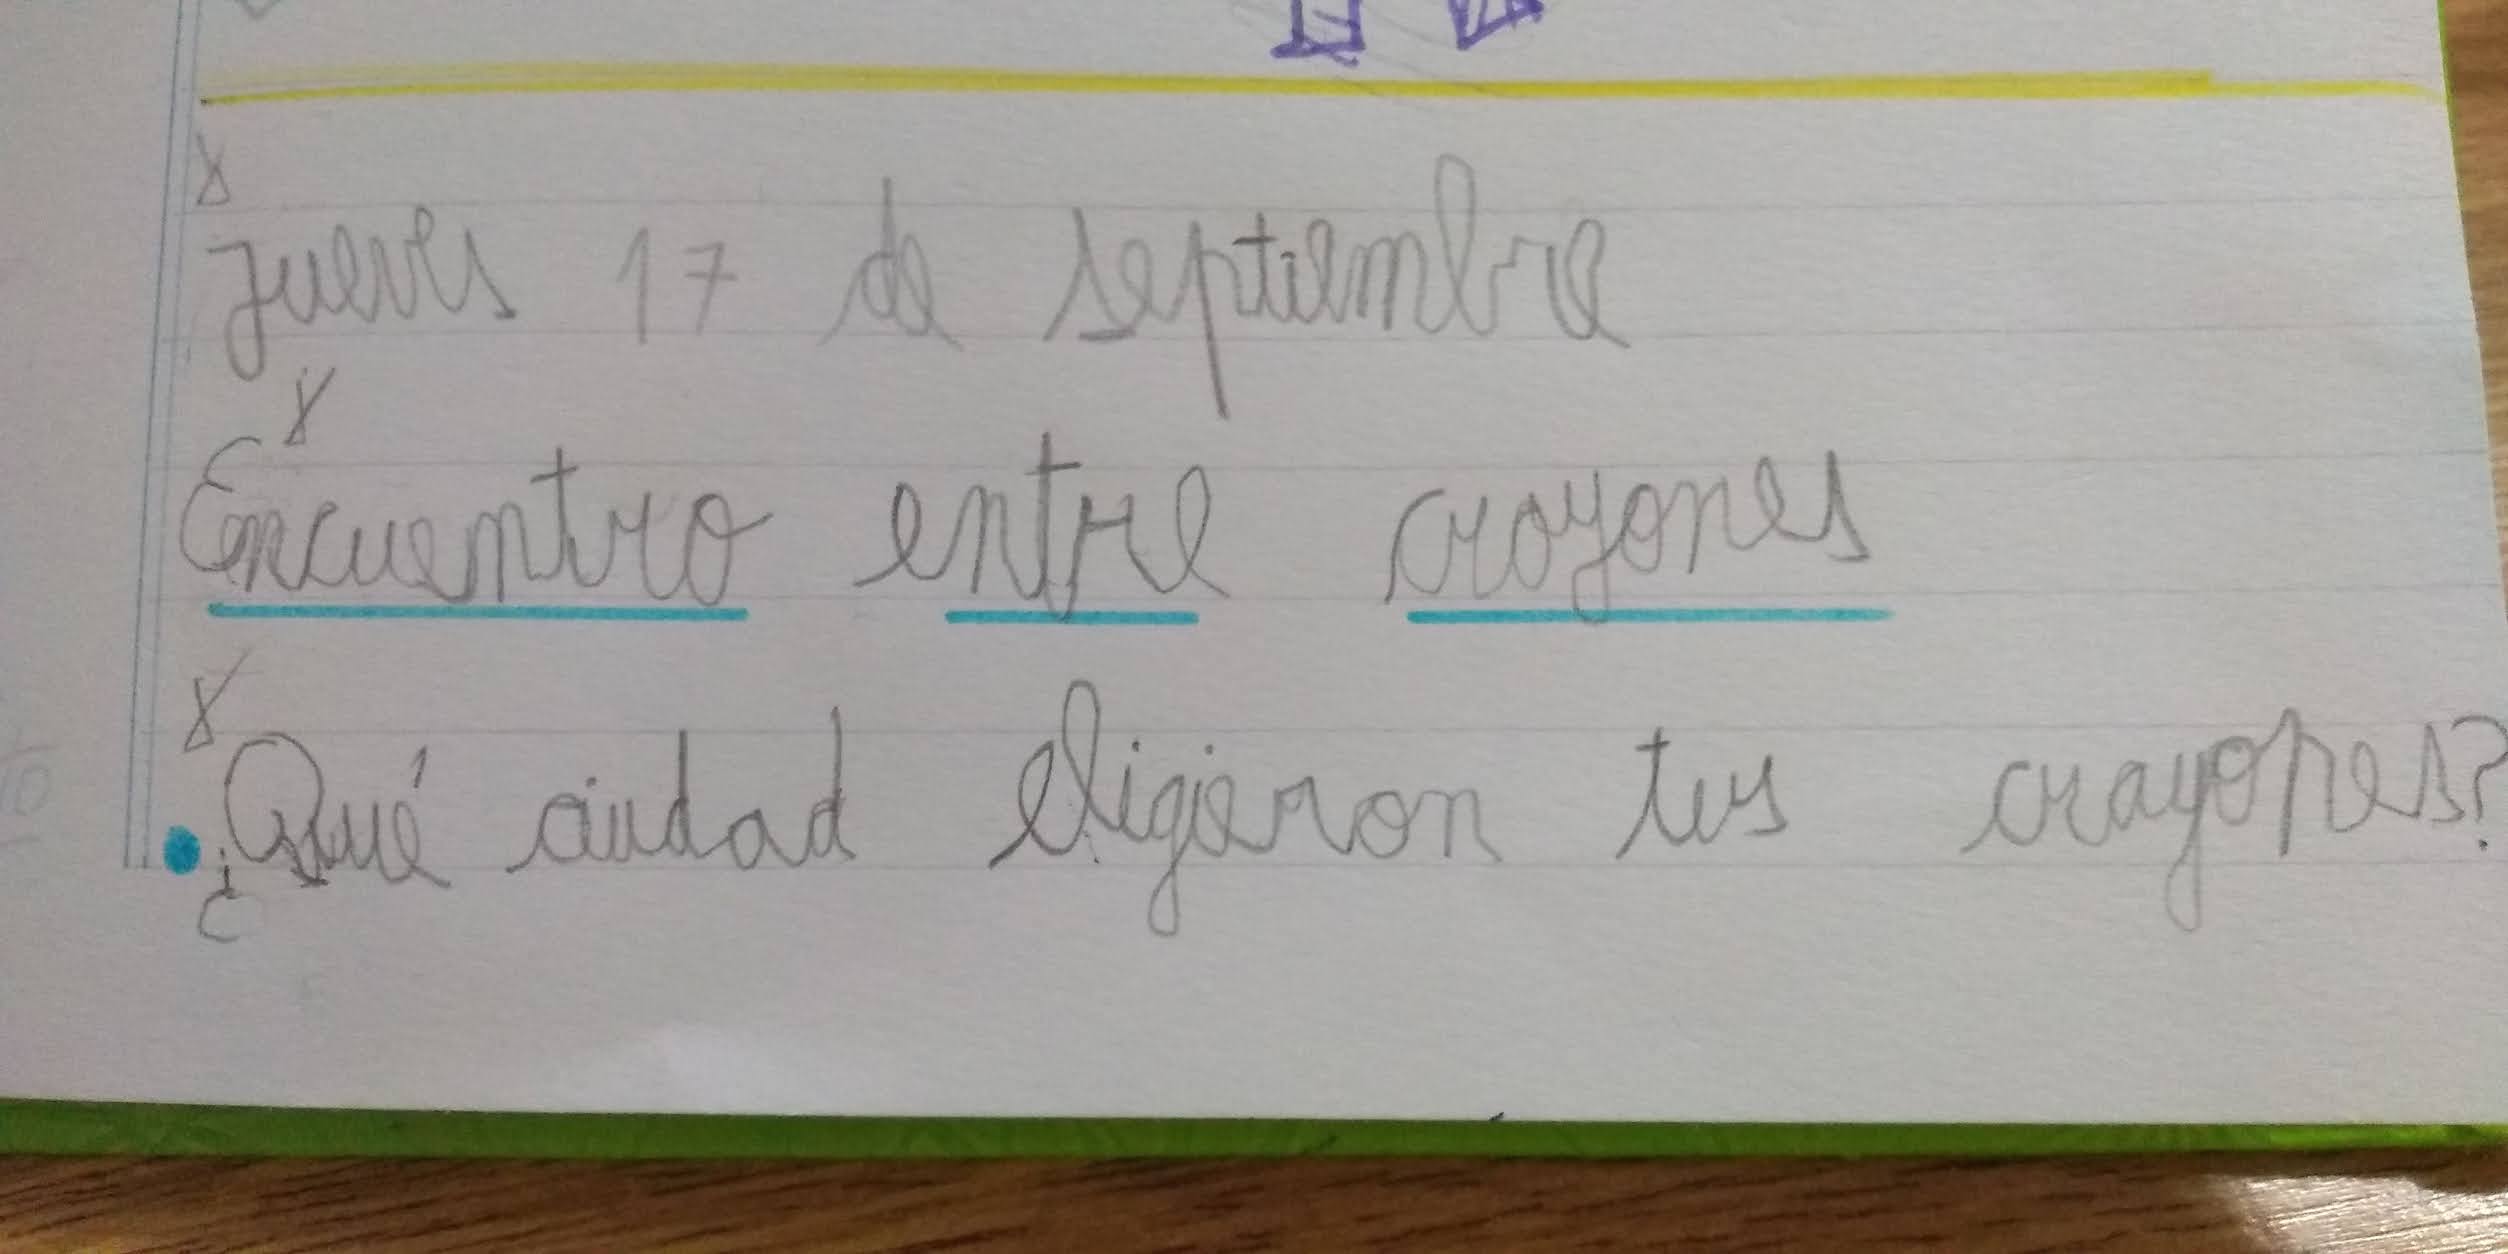 Jueves 17 de septiembre
Encuentro entre crayones
¿Qué ciudad eligieron tus crayones?